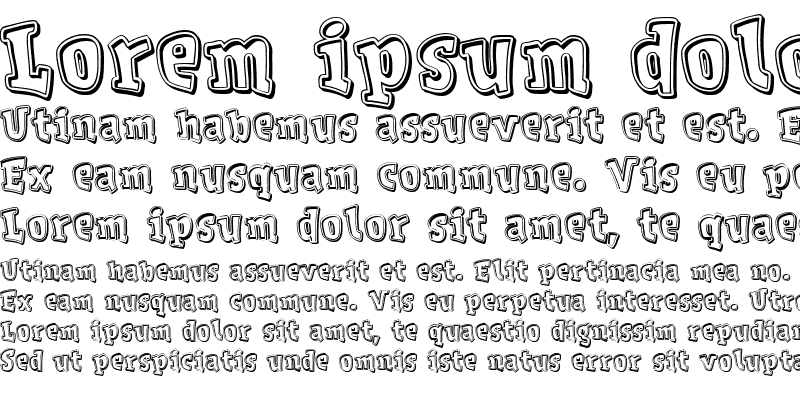 Lorem ipsum dolo
Utinam habemus assueverit et est. E
Ex eam nusquam commune. Vis eu pe
Lorem ipsum dolor sit amet, te quaes
Utinam habemus assueverit et est. Elit pertinacia mea no.
Ex eam nusquam commune. Vis eu perpetua interesset. Utro
Lorem ipsum dolor sit amet, te quaestio dignissim repudian
Sed ut perspiciatis unde omnis iste natus error sit volupta